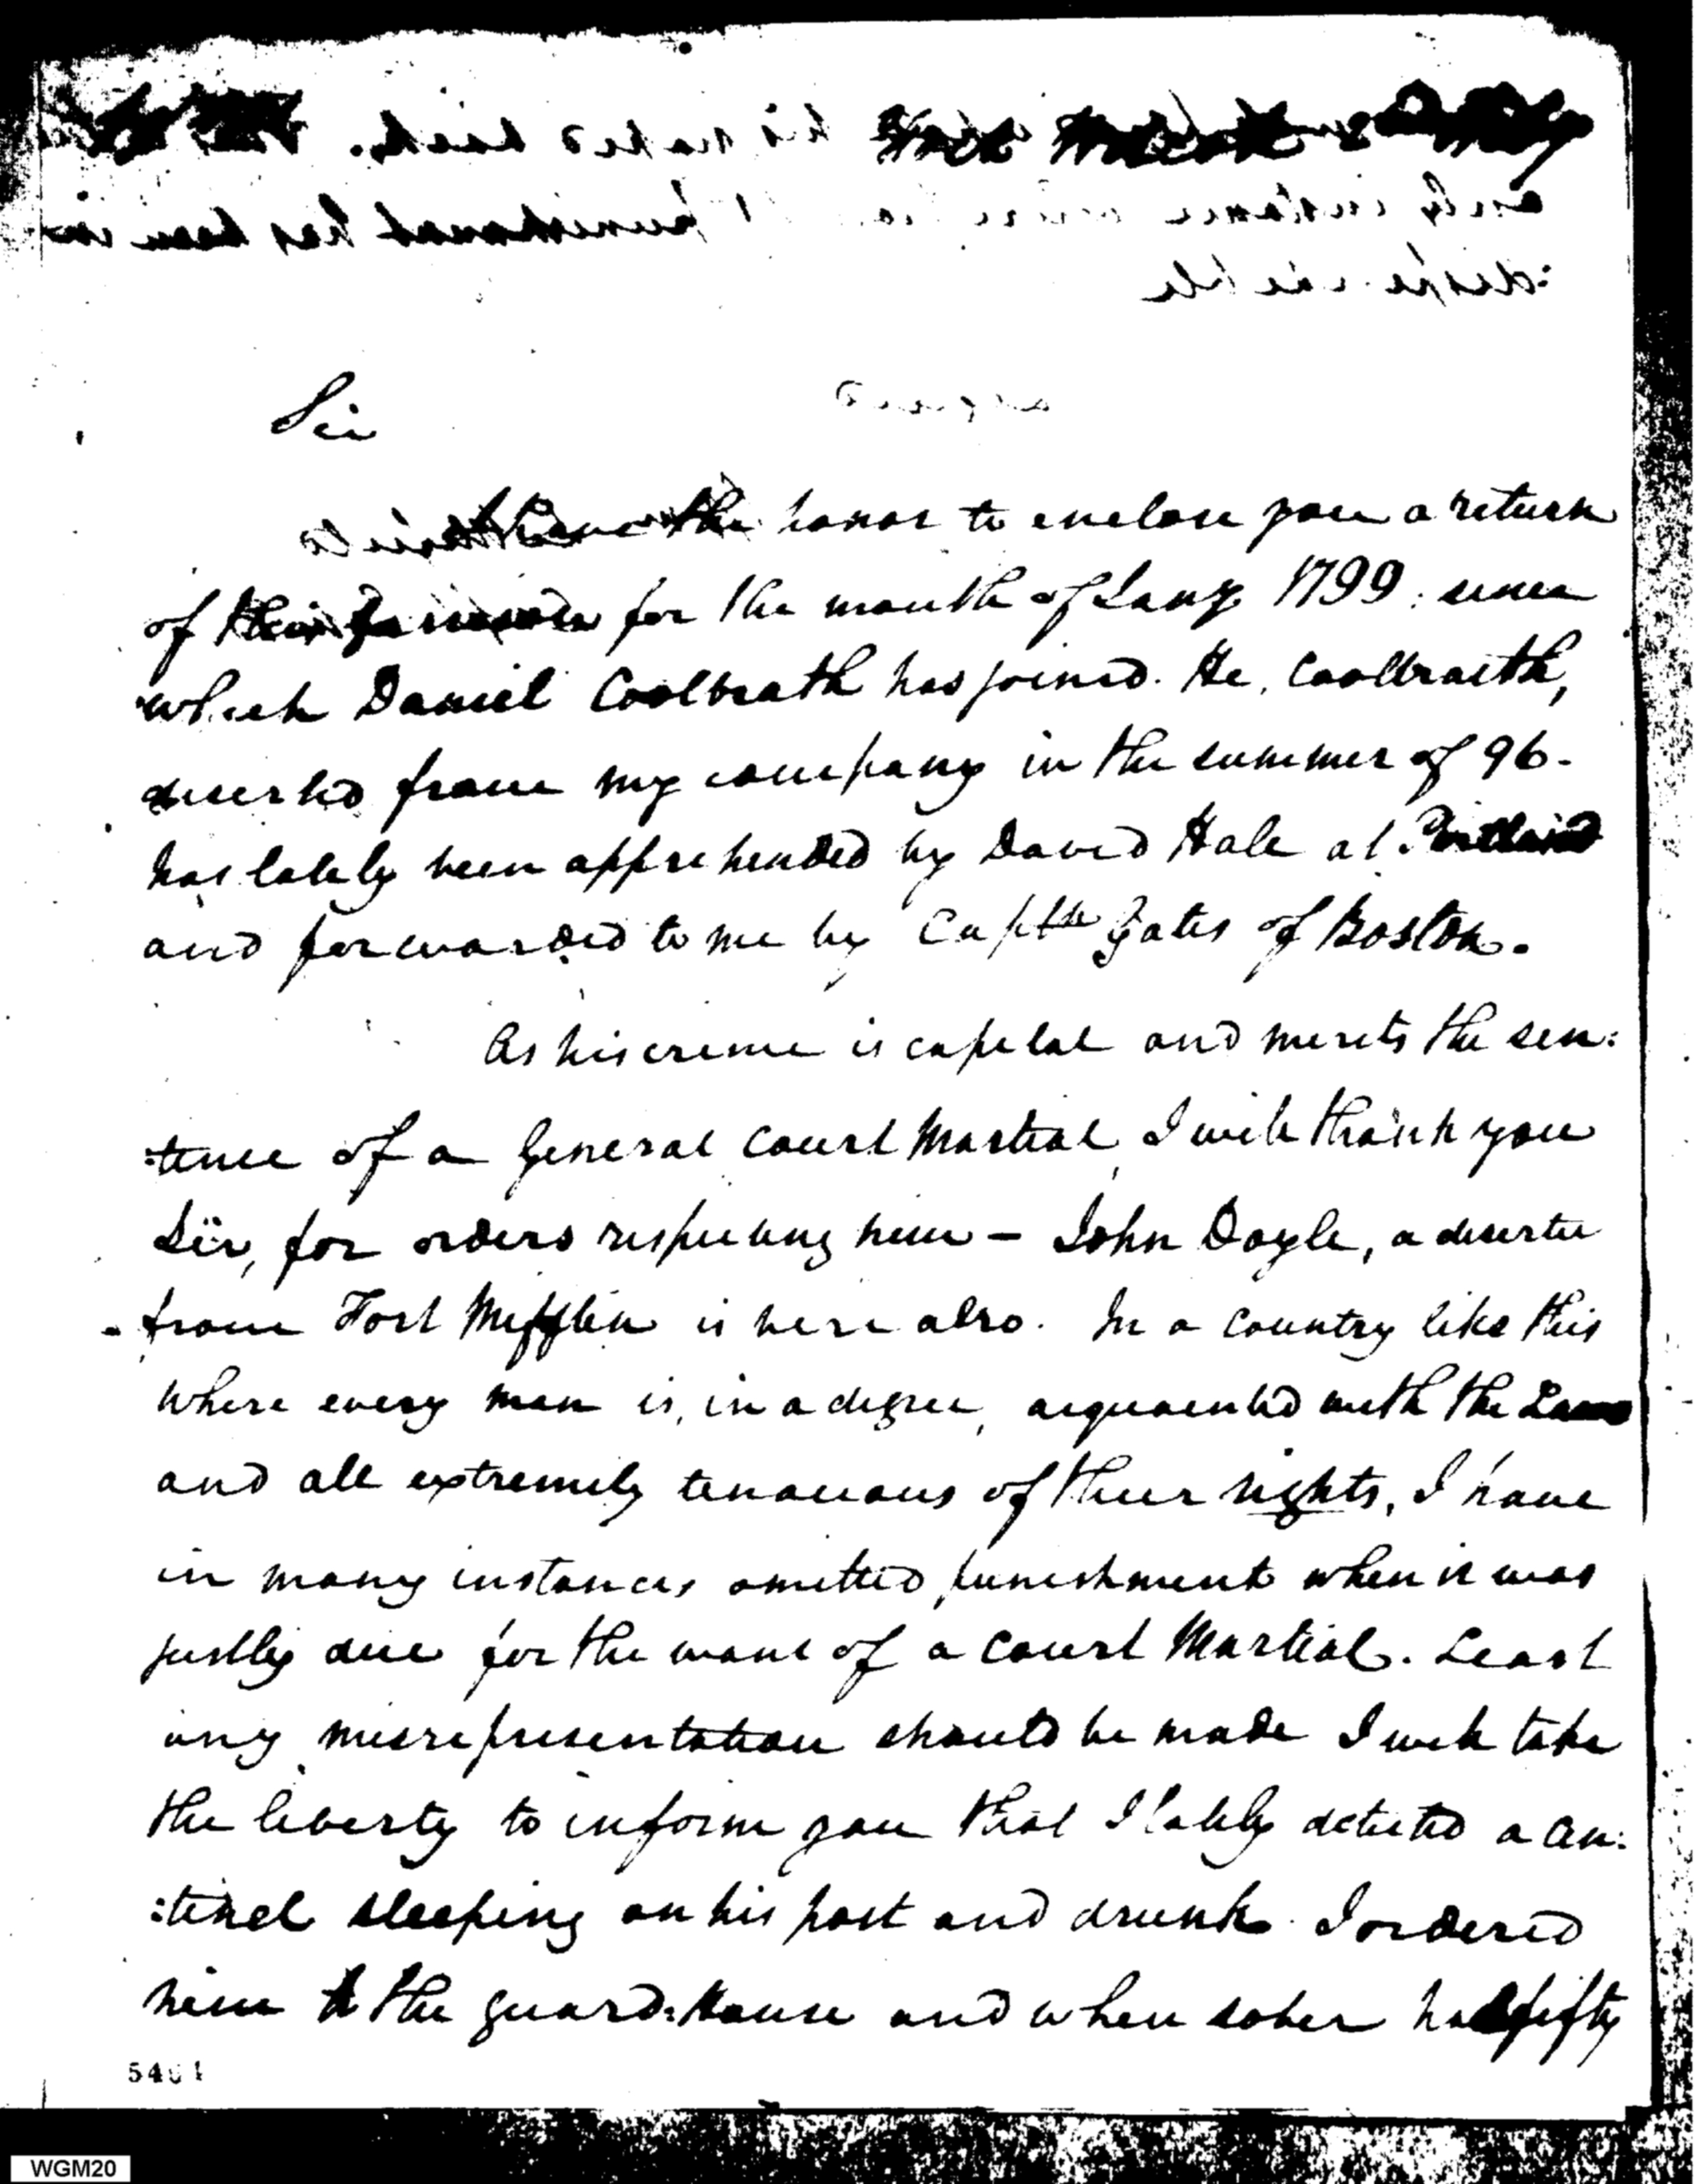 Sir
I have the honor to enclose you a return
of this garrison for the month of Jany 1799: since
which Daniel Coolbrath has joined. He, Coolbraith,
deserted from my company in the summer of 96.
has lately been apprehended by David Hale at Portland
and forwarded to me by Captn Gates of Boston.
As his crime is capital and merits the sen:
:tence of a General Court Martial, I will thank you
Sir, for orders respecting him – John Doyle, a deserter
from Fort Mifflin is here also. In a country like this
where every man is, in a degree, acquainted with the Laws
and all extremely tenacious of their rights, I have
in many instances omitted punishment when it was
justly due for the want of a Court Martial. Least
any misrepresentation should be made I will take
the liberty to inform you that I lately detected a cen:
:tinel sleeping on his post and drunk. I ordered
him to the guard:house and when sober had fifty
WGM20